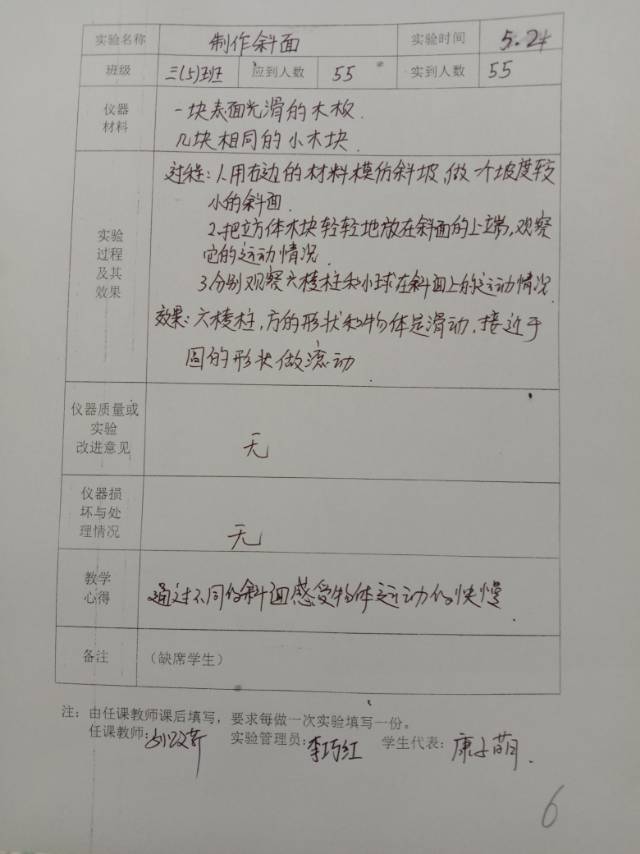 实验名称 制作斜面 实验时间 5.24
班级 三(5)班 应到人数 55 实到人数 55
仪器
材料
一块表面光滑的木板.
几块相同的小木块.
实验
过程
及其
效果
过程:1.用右边的材料模仿斜坡,做一个坡度较
小的斜面.
2.把立方体木块轻轻地放在斜面的上端,观察
它的运动情况.
3.分别观察六棱柱和小球在斜面上的运动情况.
效果:六棱柱,方的形状和物体是滑动,接近于
圆的形状做滚动.
仪器质量或
实验
改进意见
无
仪器损
坏与处
理情况
无
教学
心得
通过不同的斜面感受物体运动的快慢.
备注 (缺席学生)
注:由任课教师课后填写,要求每做一次实验填写一份。
任课教师: 实验管理员:李巧红 学生代表:康子萌.
6